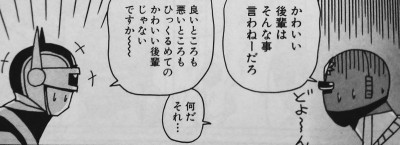 かわいい
後輩は
そんな事
言わねーだろ
どよ〜ん
良いところも
悪いところも
ひっくるめての
かわいい後輩
じゃない
ですか〜〜
何だ
それ…